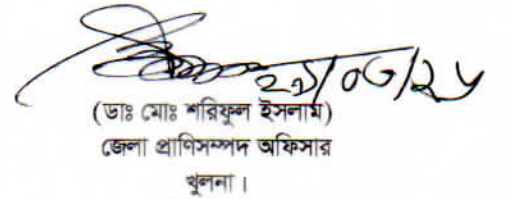 (ডাঃ মোঃ শরিফুল ইসলাম)
জেলা প্রাণিসম্পদ অফিসার
খুলনা।